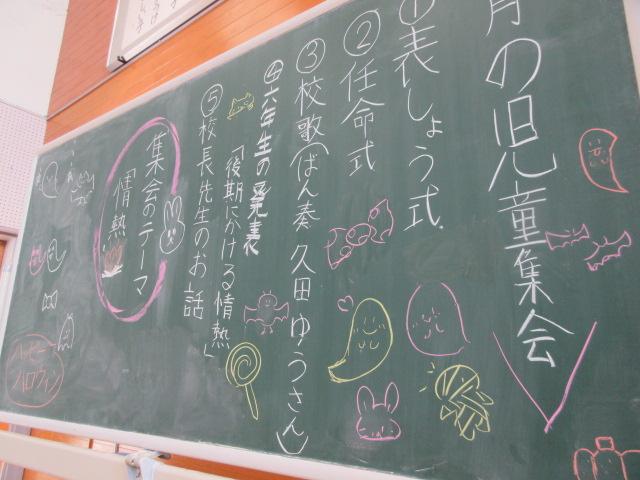 月の児童集会
①表しょう式
②任命式
③校歌(ばん奏 久田ゆうさん)
④六年生の発表
「後期にかける情熱」
⑤校長先生のお話
集会のテーマ
情熱
ハッピー
ハロウィン